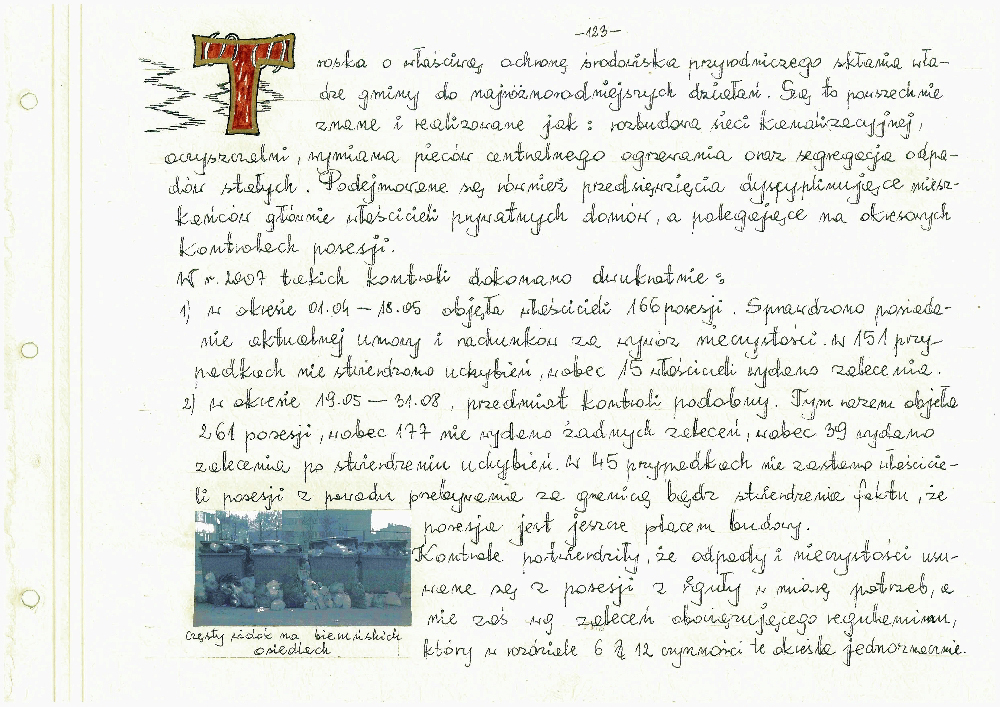 -123-
Troska o właściwą ochronę środowiska przyrodniczego skłania wła-
dze gminy do najróżnorodniejszych działań. Są to powszechnie
znane i realizowane jak: rozbudowa sieci kanalizacyjnej,
oczyszczalni, wymiana pieców centralnego ogrzewania oraz segregacja odpa-
dów stałych. Podejmowane są również przedsięwzięcia dyscyplinujące miesz-
kańców głównie właścicieli prywatnych domów, a polegające na okresowych
kontrolach posesji.
W r. 2007 takich kontroli dokonano dwukrotnie:
1) w okresie 01.04 - 18.05 objęła właścicieli 166 posesji. Sprawdzono posiada-
nie aktualnej umowy i rachunków za wywóz nieczystości. W 151 przy-
padkach nie stwierdzono uchybień, wobec 15 właścicieli wydano zalecenia.
2) w okresie 19.05 - 31.08, przedmiot kontroli podobny. Tym razem objęła
261 posesji, wobec 177 nie wydano żadnych zaleceń, wobec 39 wydano
zalecenia po stwierdzeniu uchybień. W 45 przypadkach nie zastano właścicie-
li posesji z powodu przebywania za granicą bądź stwierdzenia faktu, że
posesja jest jeszcze placem budowy.
Kontrole potwierdziły, że odpady i nieczystości usu-
wane są z posesji z reguły w miarę potrzeb, a
nie zaś wg zaleceń obowiązującego regulaminu,
który w rozdziale 6 § 12 czynności te określa jednoznacznie.
Częsty widok na bieruńskich
osiedlach